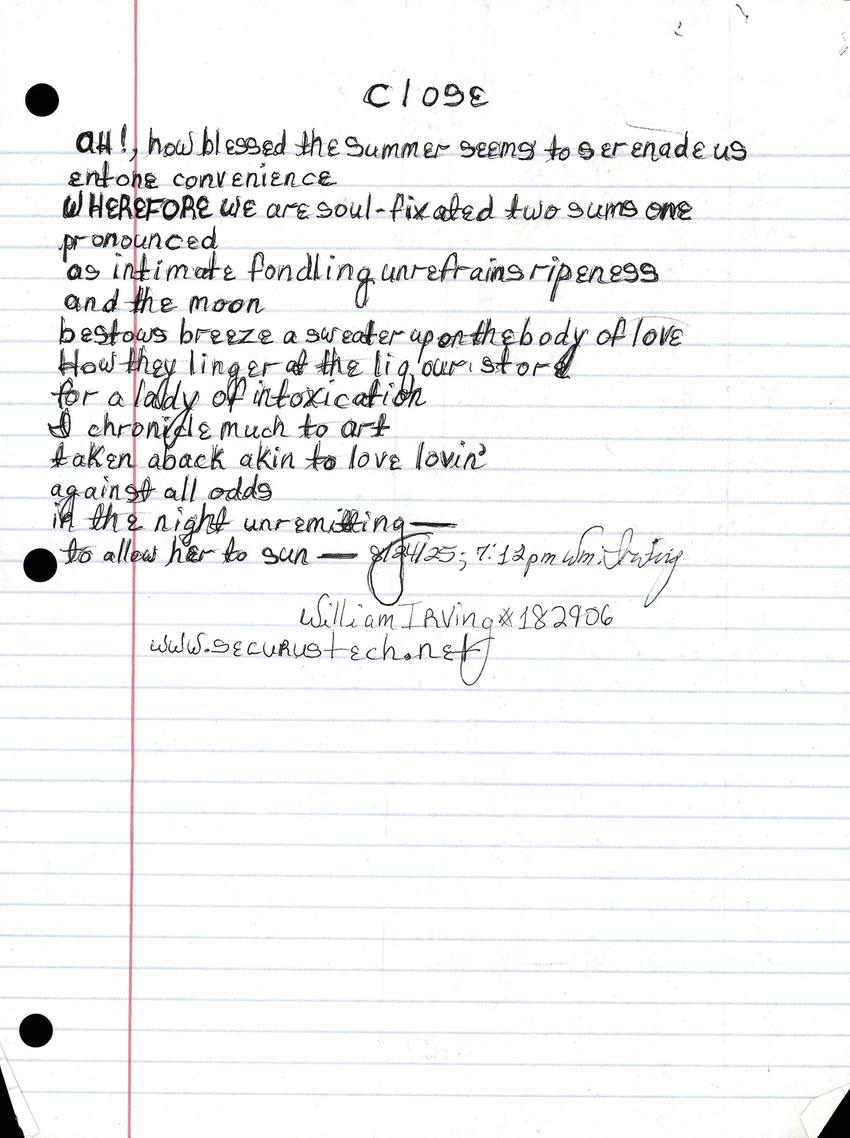 Close
AH!, how blessed the summer seems to serenade us
entone convenience
WHEREFORE we are soul-fixated two sums one
pronounced
as intimate fondling unrefrains ripeness
and the moon
bestows breeze a sweater upon the body of love
How they linger at the liq'our store
for a lady of intoxication
I chronicle much to art
taken aback akin to love lovin'
against all odds
in the night unremitting—
to allow her to sun — 8/24/25; 7:12pm Wm. Irving
William IRVing #182906
www.securustech.net